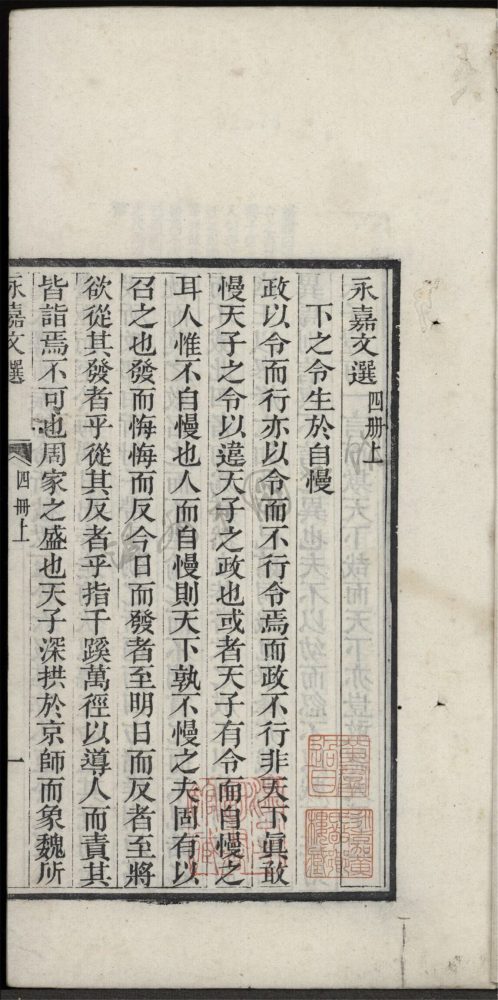 永嘉文選四册上
下之令生於自慢
政以令而行亦以令而不行令焉而政不行非天下眞敢
慢天子之令以違天子之政也或者天子有令而自慢之
耳人惟不自慢也人而自慢則天下孰不慢之夫固有以
召之也發而悔悔而反今日而發者至明日而反者至將
欲從其發者乎從其反者乎指千蹊萬徑以導人而責其
皆詣焉不可也周家之盛也天子深拱於京師而象魏所
永嘉文選 四册上 一